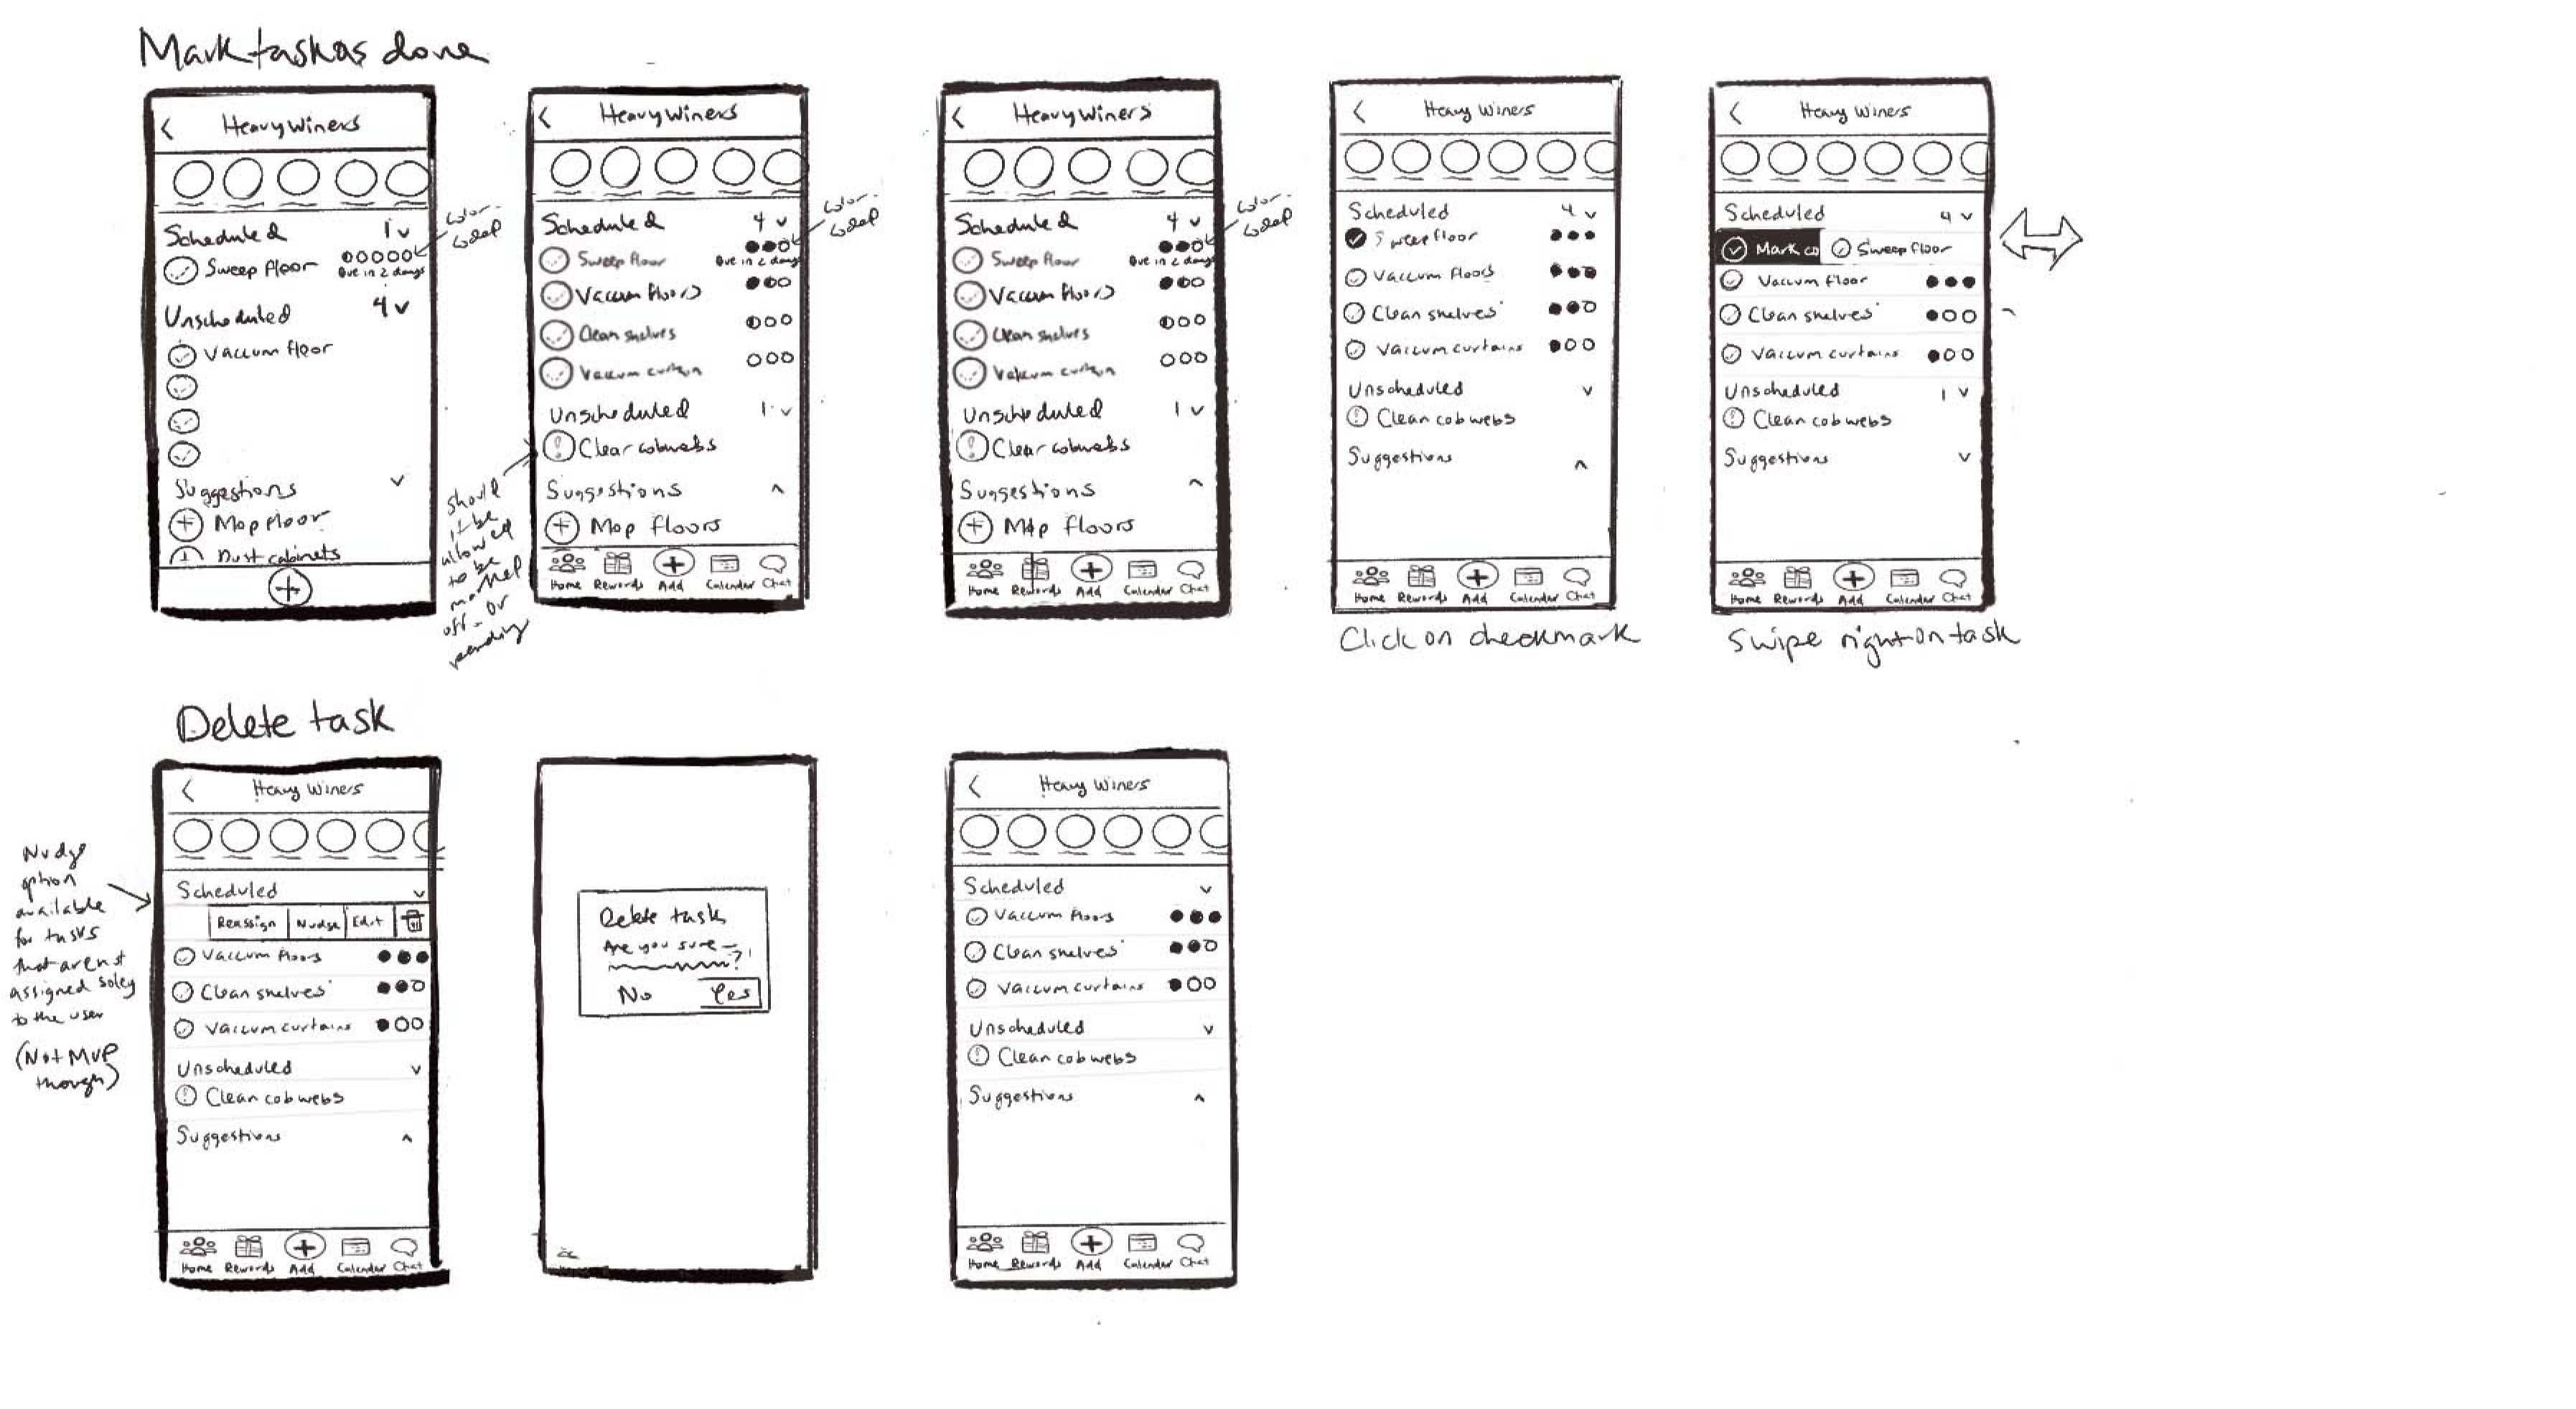 Mark task as done
< Heavy Winers
Scheduled 1 v
Sweep Floor
Due in 2 days
Unscheduled 4 v
Vaccum floor
Suggestions v
+ Mop floor
Dust cabinets
+
color-
coded
< Heavy Winers
Scheduled 4 v
Sweep floor
Due in 2 days
Vaccum floors
Clean shelves
Vaccum curtain
Unscheduled 1 v
! Clear cobwebs
Suggestions ^
+ Mop floors
Home Rewards Add Calendar Chat
color-
coded
should
it be
allowed
to be
marked
off - or
pending
< Heavy Winers
Scheduled 4 v
Sweep floor
Due in 2 days
Vaccum floors
Clean shelves
Vaccum curtain
Unscheduled 1 v
! Clear cobwebs
Suggestions ^
+ Mop floors
Home Rewards Add Calendar Chat
color-
coded
< Heavy Winers
Scheduled 4 v
Sweep floor
Vaccum floors
Clean shelves
Vaccum curtains
Unscheduled v
! Clean cobwebs
Suggestions ^
Home Rewards Add Calendar Chat
Click on checkmark
< Heavy Winers
Scheduled 4 v
Mark co Sweep floor
Vaccum floor
Clean shelves
Vaccum curtains
Unscheduled 1 v
! Clean cobwebs
Suggestions v
Home Rewards Add Calendar Chat
Swipe right on task
Delete task
Nudge
option
available
for tasks
that arenst
assigned soley
to the user
(Not MVP
though)
< Heavy Winers
Scheduled v
Reassign Nudge Edit
Vaccum floors
Clean shelves
Vaccum curtains
Unscheduled v
! Clean cobwebs
Suggestions ^
Home Rewards Add Calendar Chat
Delete task
Are you sure
?
No Yes
< Heavy Winers
Scheduled v
Vaccum floors
Clean shelves
Vaccum curtains
Unscheduled v
! Clean cobwebs
Suggestions ^
Home Rewards Add Calendar Chat